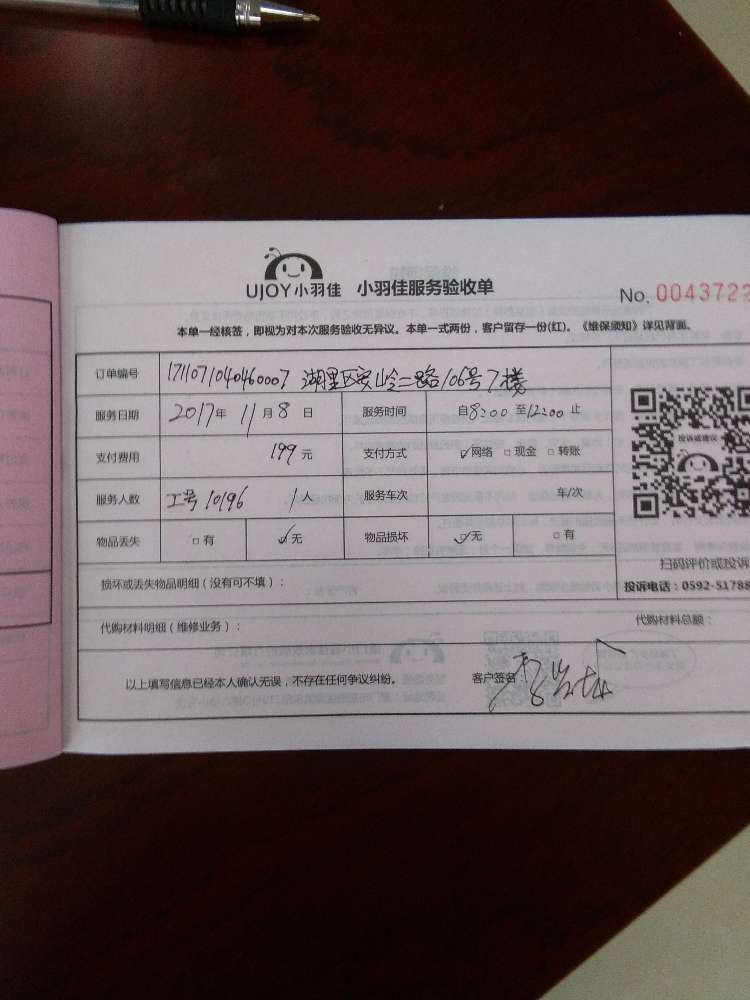 UJOY小羽佳 小羽佳服务验收单
No. 0043722
本单一经核签，即视为对本次服务验收无异议。本单一式两份，客户留存一份(红)。《维保须知》详见背面。
订单编号 1711071040460007 湖里区安岭二路106号7楼
服务日期 2017年 11月8日 服务时间 自8:00至12:00止
支付费用 199元 支付方式 ✓网络 □现金 □转账
投诉或建议
服务人数 工号10196 1人 服务车次 车/次
物品丢失 □有 ✓无 物品损坏 ✓无 □有
扫码评价或投诉
损坏或丢失物品明细（没有可不填）：
投诉电话：0592-51788
代购材料明细（维修业务）： 代购材料总额：
以上填写信息已经本人确认无误，不存在任何争议纠纷。 客户签名